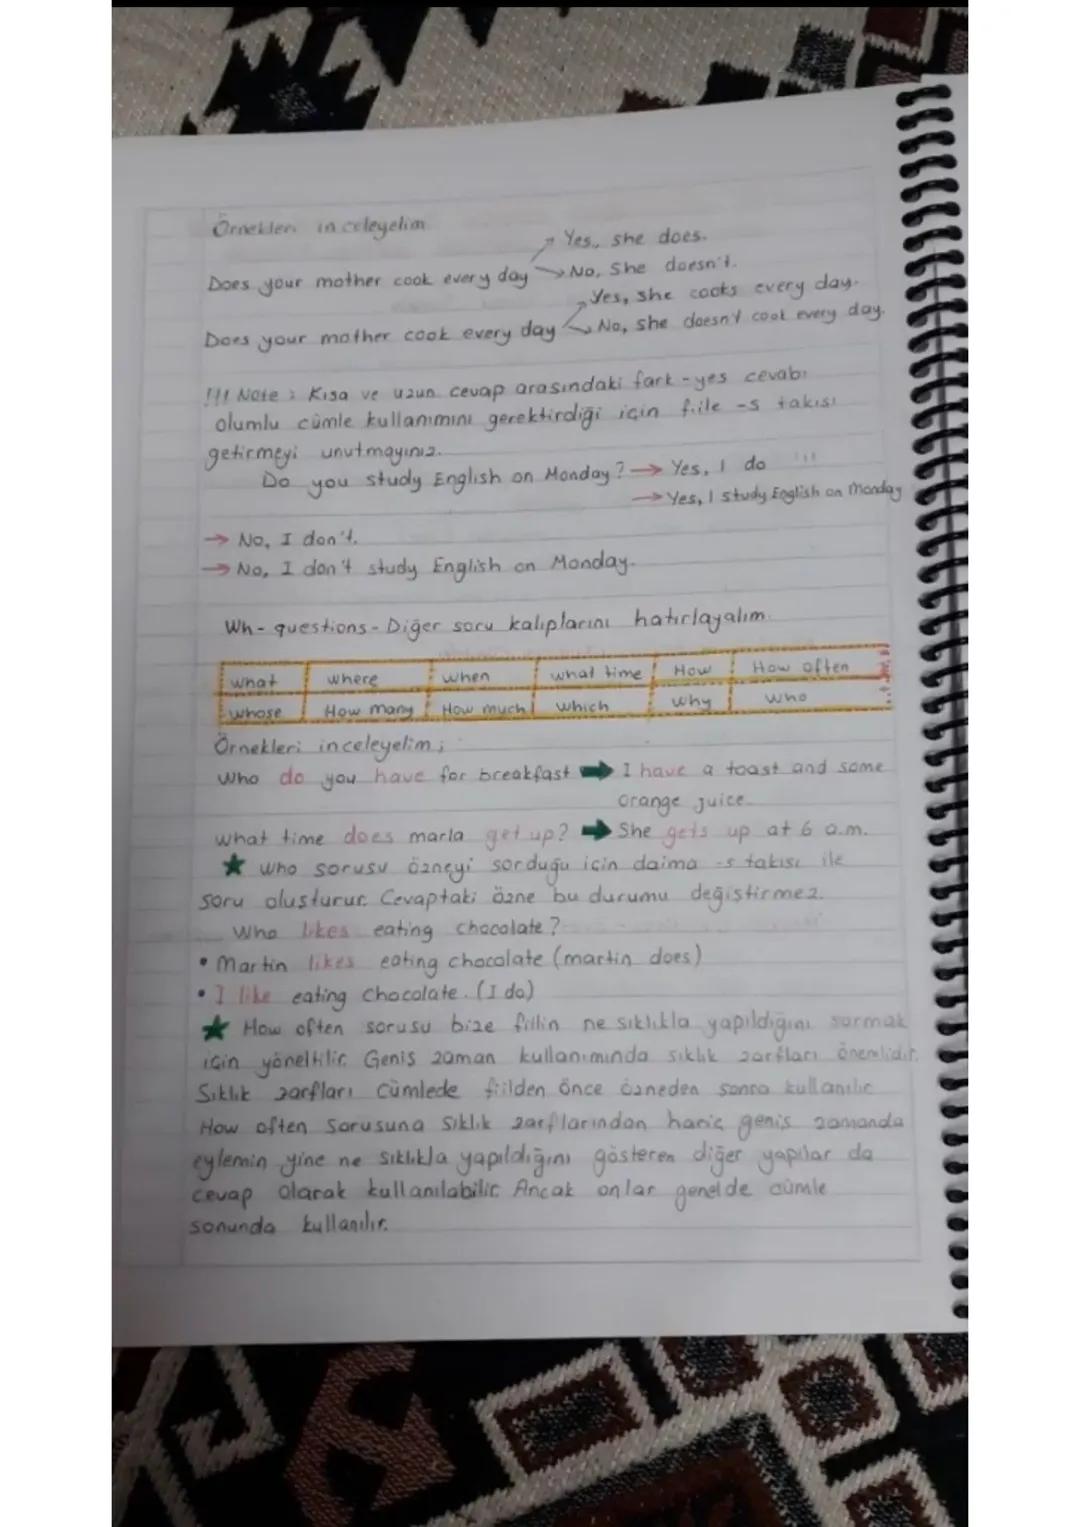 Örnekleri inceleyelim.
Does your mother cook every day → Yes, she does.
→ No, She doesn't.
Does your mother cook every day → Yes, she cooks every day.
→ No, she doesn't cook every day.
!!! Note : Kısa ve uzun cevap arasındaki fark - yes cevabı
olumlu cümle kullanımını gerektirdiği için fiile -s takısı
getirmeyi unutmayınız.
Do you study English on Monday? → Yes, I do
→ Yes, I study English on Monday
→ No, I don't.
→ No, I don't study English on Monday.
Wh- questions - Diğer soru kalıplarını hatırlayalım.
what where when what time How How often
whose How many How much which why who
Örnekleri inceleyelim;
Who do you have for breakfast ➡ I have a toast and some
orange juice.
what time does marla get up? ➡ She gets up at 6 a.m.
★ who sorusu özneyi sorduğu için daima -s takısı ile
soru oluşturur. Cevaptaki özne bu durumu değiştirmez.
Who likes eating chocolate?
• Martin likes eating chocolate (martin does)
• I like eating chocolate. (I do)
★ How often sorusu bize fiilin ne sıklıkla yapıldığını sormak
için yöneltilir. Geniş zaman kullanımında sıklık zarfları önemlidir.
Sıklık zarfları cümlede fiilden önce özneden sonra kullanılır
How often sorusuna sıklık zarflarından hariç geniş zamanda
eylemin yine ne sıklıkla yapıldığını gösteren diğer yapılar da
cevap olarak kullanılabilir. Ancak onlar genelde cümle
sonunda kullanılır.